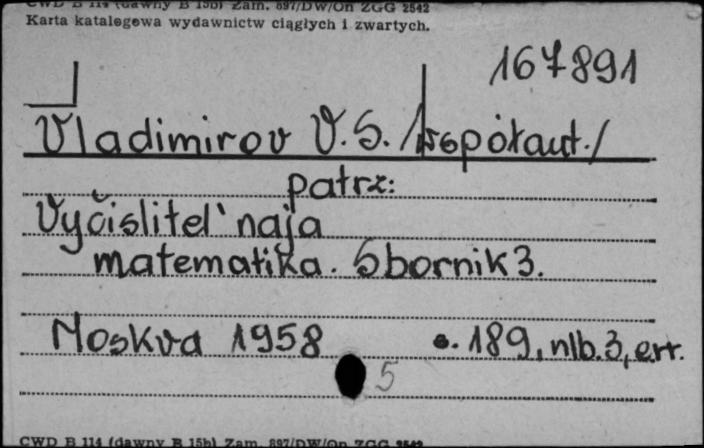 CWD B 114 (dawny B 15b) Zam. 897/DW/On ZGG 2542
Karta katalogowa wydawnictw ciągłych i zwartych.
167891
Vladimirov V.S. /współaut./
patrz:
Vyčislitel'naja
matematika. Sbornik 3.
Moskva 1958 s. 189, nlb. 3, err.
5
CWD B 114 (dawny B 15b) Zam. 897/DW/On ZGG 2542